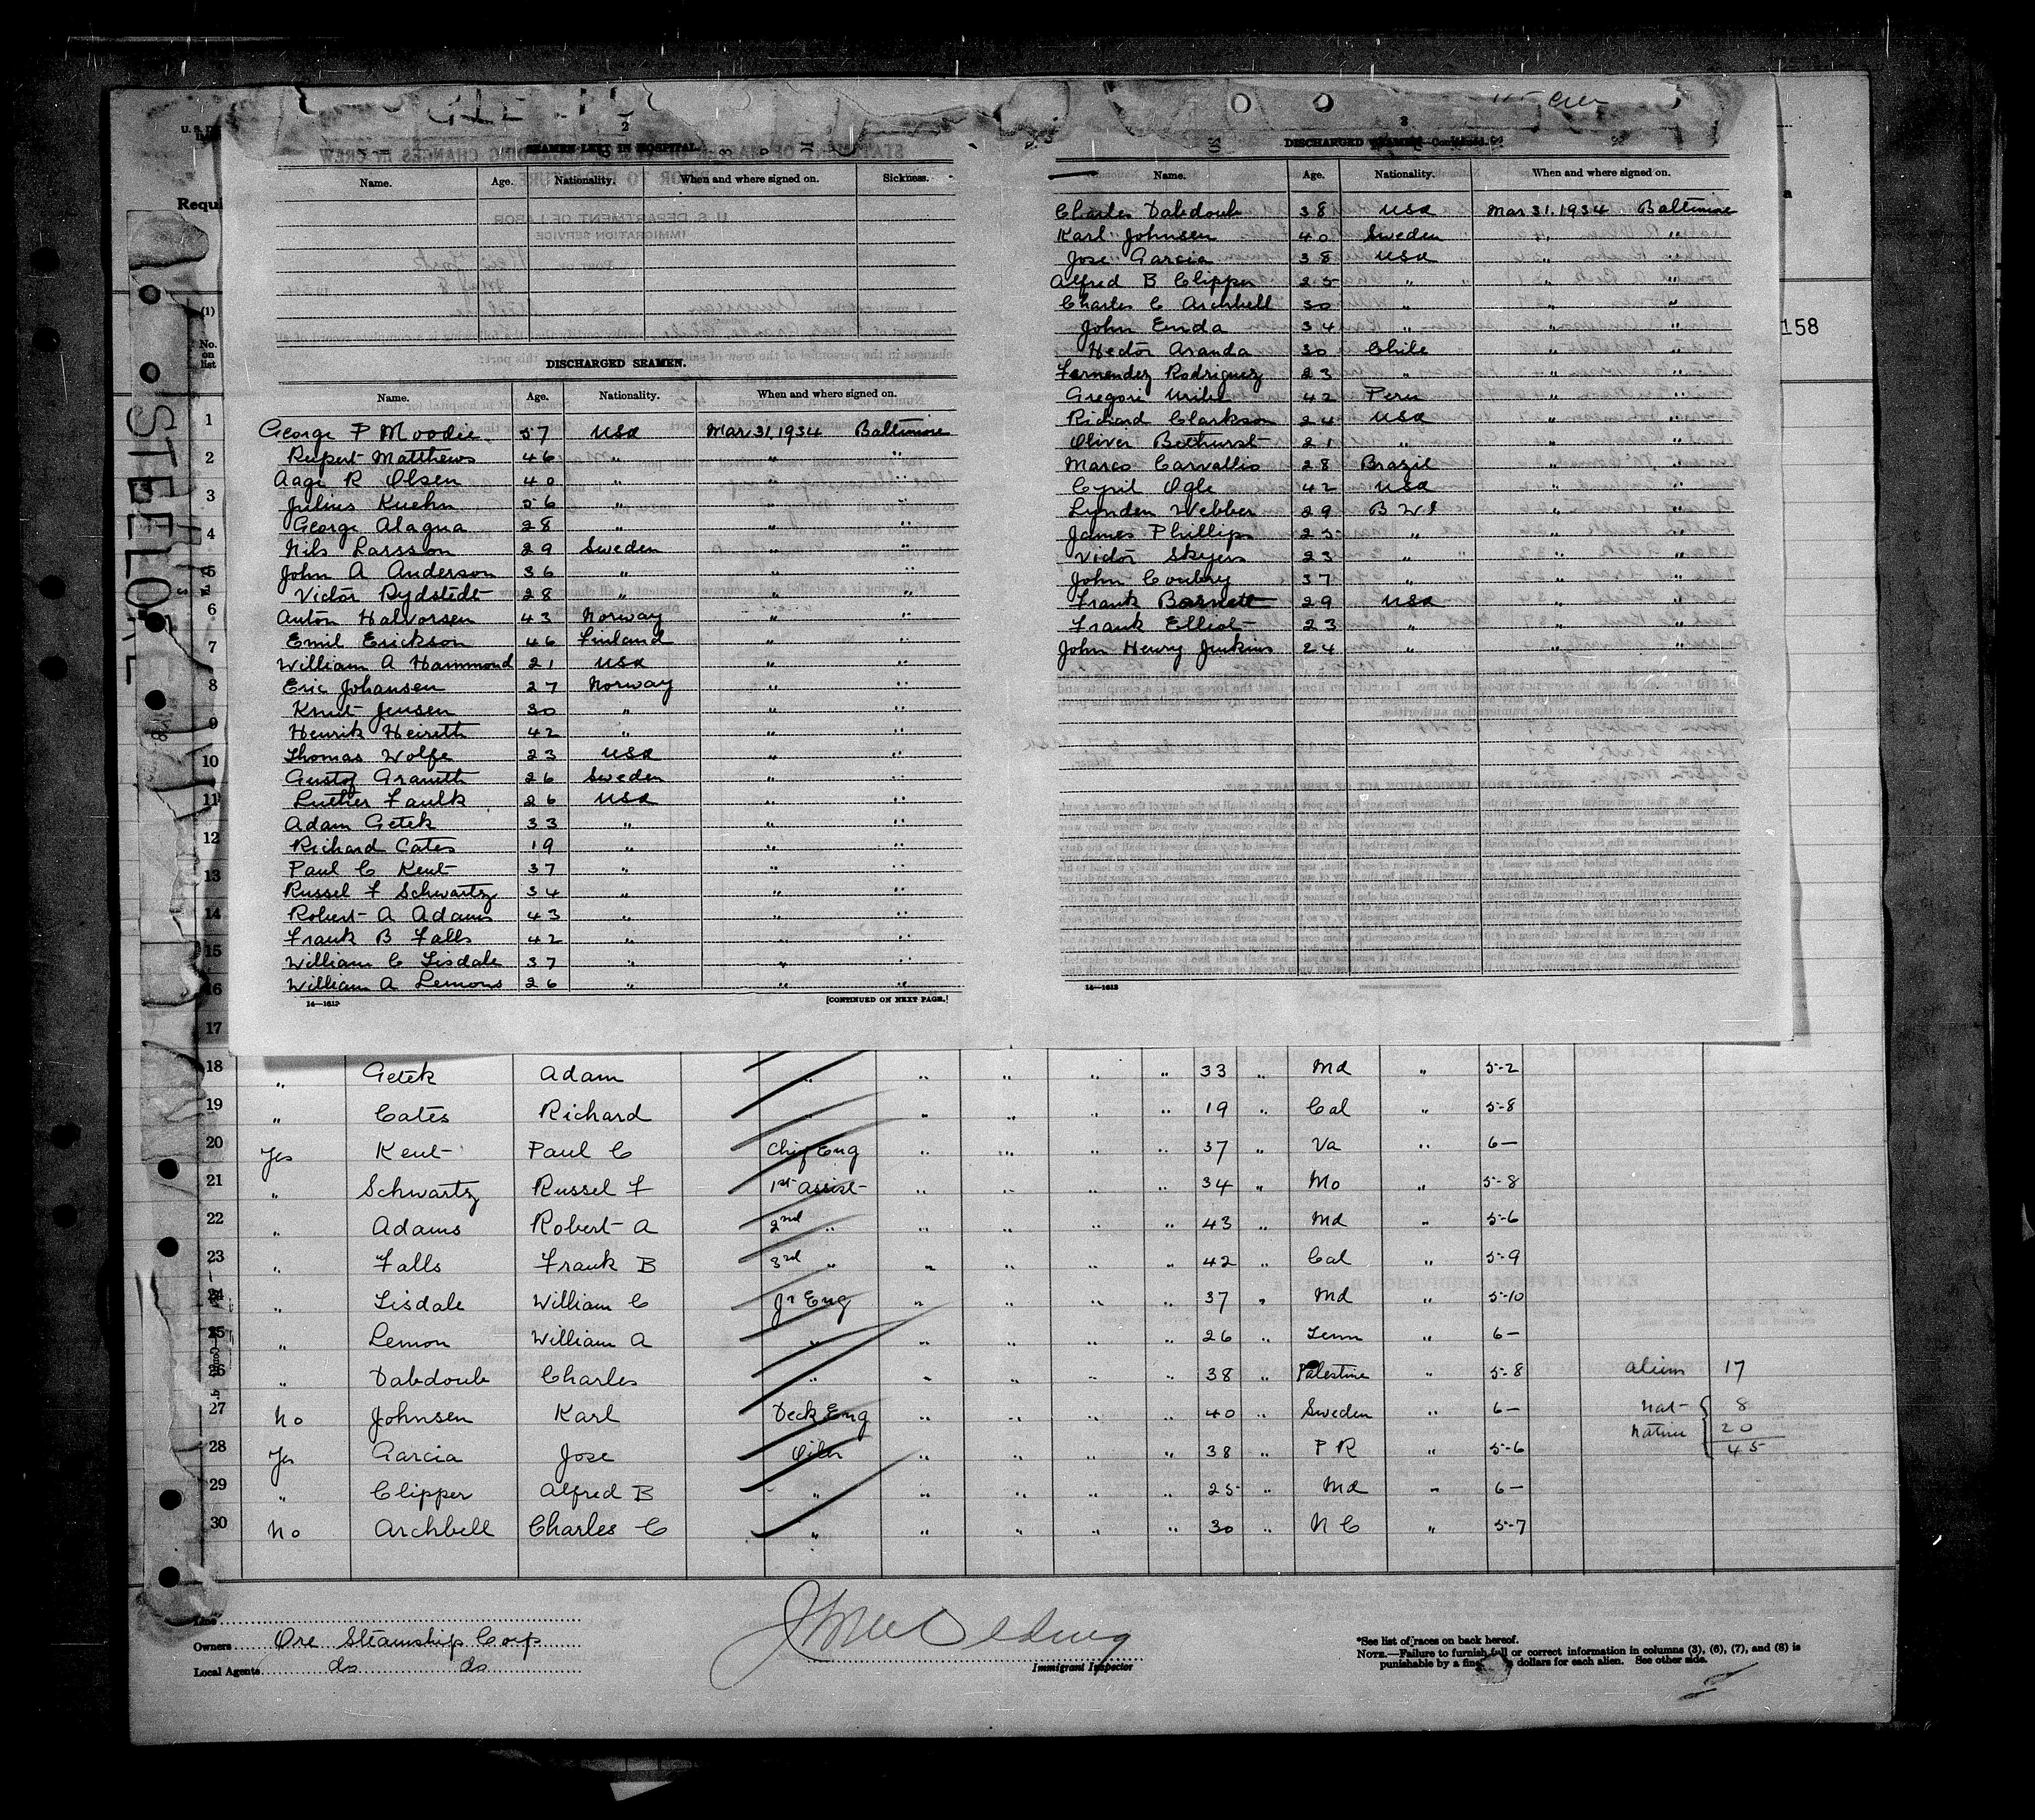 2
SEAMEN LEFT IN HOSPITAL.
Name. Age. Nationality. When and where signed on. Sickness.
DISCHARGED SEAMEN.
Name. Age. Nationality. When and where signed on.
George P Moodie 57 USA Mar 31, 1934 Baltimore
Rupert Matthews 46 " " "
Aage R Olsen 40 " " "
Julius Kuehn 56 " " "
George Alagna 28 " " "
Nils Larsson 29 Sweden " "
John A Anderson 36 " " "
Victor Rydstedt 28 " " "
Anton Halvorsen 43 Norway " "
Emil Erickson 46 Finland " "
William A Hammond 21 USA " "
Eric Johansen 27 Norway " "
Knut Jensen 30 " " "
Henrik 42 " " "
Thomas Wolfe 23 USA " "
Gustof 26 Sweden " "
Luther Faulk 26 USA " "
Adam Getek 33 " " "
Richard Cates 19 " " "
Paul C Kent 37 " " "
Russel F Schwartz 34 " " "
Robert A Adams 43 " " "
Frank B Falls 42 " " "
William C Tisdale 37 " " "
William A Lemons 26 " " "
[CONTINUED ON NEXT PAGE.]
3
DISCHARGED SEAMEN—Continued.
Name. Age. Nationality. When and where signed on.
Charles Dabdoub 38 USA Mar 31, 1934 Baltimore
Karl Johnsen 40 Sweden " "
Jose Garcia 38 USA " "
Alfred B Clipper 25 " " "
Charles C Archbell 30 " " "
John Enda 34 " " "
Hector Aranda 30 Chile " "
Fernendez Rodriguez 23 " " "
Gregori Uribe 42 Peru " "
Richard Clarkson 24 USA " "
Oliver Bethurst 21 " " "
Marco Carvallio 28 Brazil " "
Cyril Ogle 42 USA " "
Lynden Webber 29 B W I " "
James Phillips 25 " " "
Victor Skyers 23 " " "
John Conbry 37 " " "
Frank Barnett 29 USA " "
Frank Elliot 23 " " "
John Henry Jenkins 24 " " "
158
STEELO
Requi
(1)
No. on list
1
2
3
4
5
6
7
8
9
10
11
12
13
14
15
16
17
18 " Getek Adam " " " " " 33 " Md " 5-2
19 " Cates Richard " " " " " 19 " Cal " 5-8
20 Yes Kent Paul C Chif Eng " " " " 37 " Va " 6—
21 " Schwartz Russel F 1st Assist " " " " 34 " Mo " 5-8
22 " Adams Robert A 2nd " " " " " 43 " Md " 5-6
23 " Falls Frank B 3rd " " " " " 42 " Cal " 5-9
24 " Tisdale William C Jr Eng " " " " 37 " Md " 5-10
25 " Lemon William A " " " " " 26 " Tenn " 6—
26 " Dabdoub Charles " " " " " 38 " Palestine " 5-8 aliens 17
27 No Johnsen Karl Deck Eng " " " " 40 " Sweden " 6— Nat 8
28 Yes Garcia Jose Oiler " " " " 38 " P R " 5-6 Native 20
45
29 " Clipper Alfred B " " " " " 25 " Md " 6—
30 No Archbell Charles C " " " " " 30 " N C " 5-7
Line
Owners Ore Steamship Corp
Local Agents do do
Immigrant Inspector
*See list of races on back hereof.
NOTE.—Failure to furnish full or correct information in columns (3), (6), (7), and (8) is
punishable by a fine dollars for each alien. See other side.